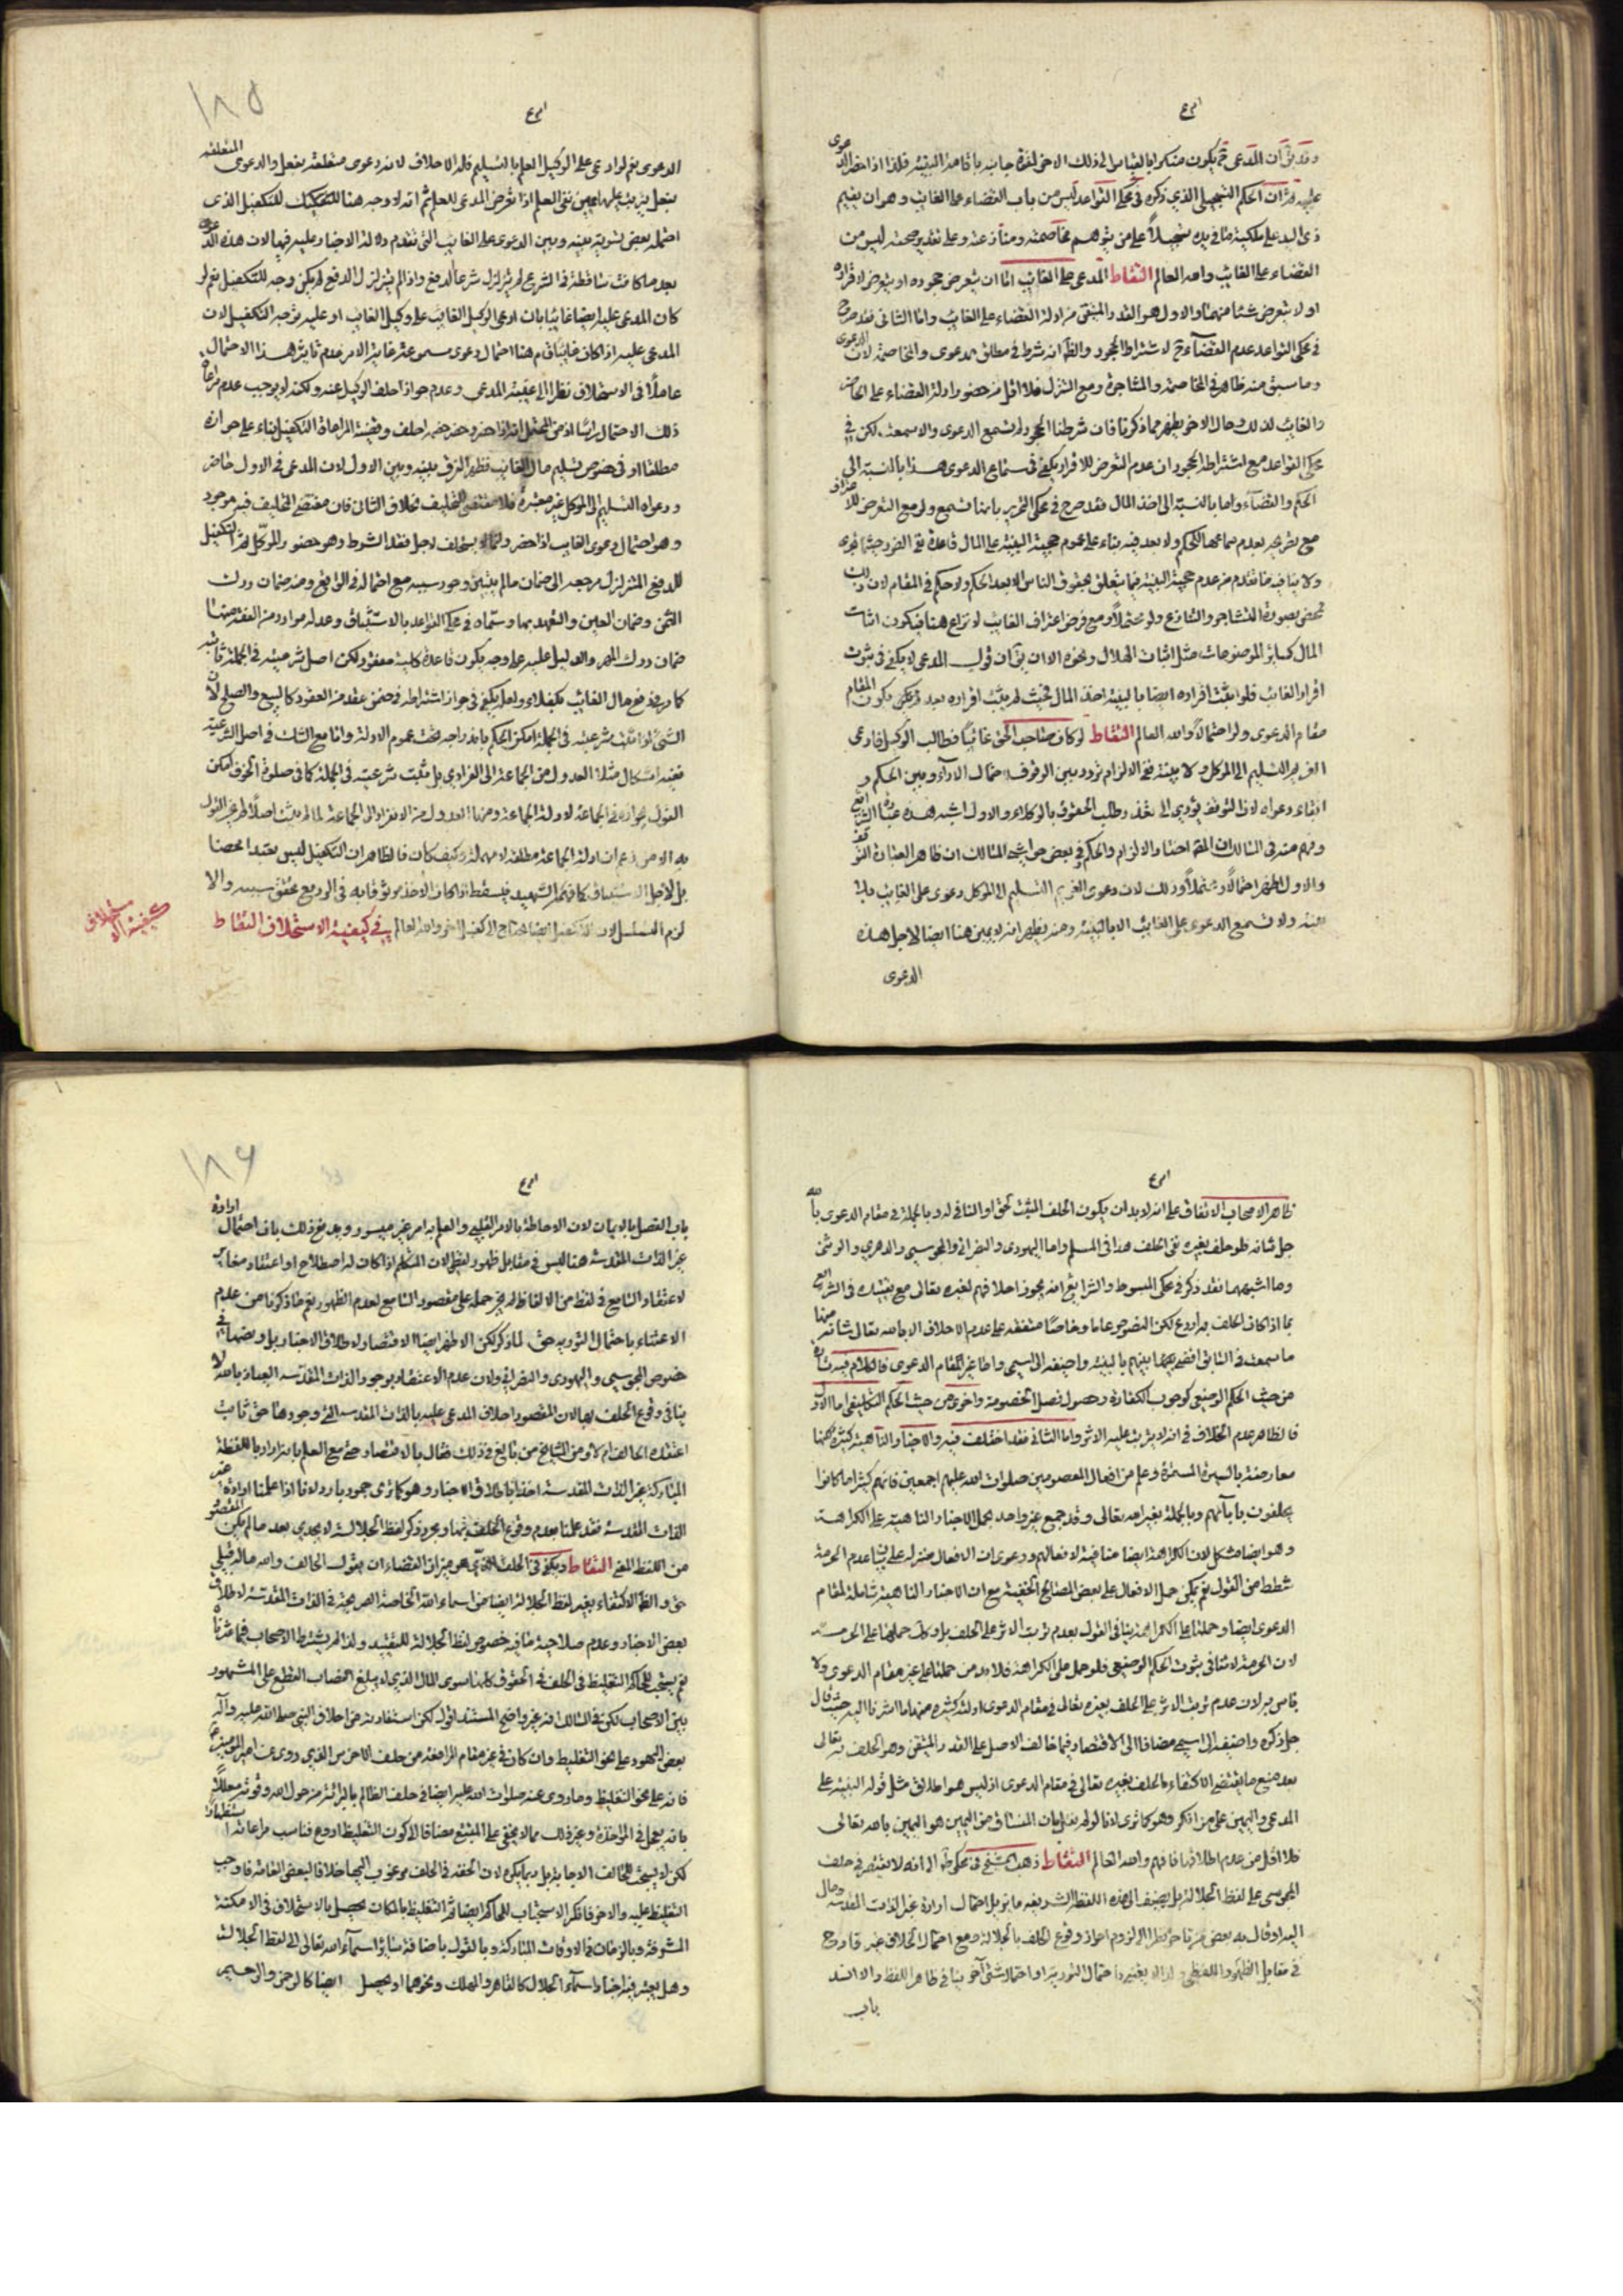 وقد يق ان المدعى قد يكون منكرا بالقياس الى ذلك الاخر لقوة جانبه باقامة البينة فلذا اذا حضر الدعوى
عليه ثم ان الحكم التسجيلى الذي ذكره في محكى القواعد ليس من باب القضاء على الغايب وهو ان يقيم
ذى اليد على ملكية ما فى يده تسجيلاً على من يتوهم مخاصمته ومنازعته وعلى تقدير صحته ليس من
القضاء على الغايب والله العالم التقاط المدعى على الغايب اما ان يتعرض جحوده او يتعرض لاقراره
او لا يتعرض شيئا منهما والاول هو القدر المتيقن من ادلة القضاء على الغايب واما الثانى فقد صرح
في محكى القواعد عدم القضاء لاشتراط الجحود والظ انه شرط في مطلق الدعوى والمخاصمة لان الدعوى
وما سبق منه ظاهر في المخاصمة والمشاجرة ومع التنزل فلا اقل من حضور ادلة القضاء على الحاضر
والغايب لذلك وحال الاخر يظهر مما ذكرنا فان شرطنا الجحود لم تسمع الدعوى والا سمعت لكن في
محكى القواعد مع اشتراط الجحود ان عدم التعرض للاقرار يكفي فى سماع الدعوى هذا بالنسبة الى
الحكم والقضاء واما بالنسبة الى اخذ المال فقد صرح في محكى التحرير بانها تسمع ولو مع التعرض للاعتراف
مع تصريحه بعدم سماعها للحكم ولا بعد فيه بناء على عموم حجية البينة على المال
ولا ينافيه ما تقدم من عدم حجية البينة فيما يتعلق بحقوق الناس الا بعد الحكم ولا حكم في المقام لان ذلك
مختص بصورة التشاجر والتنازع ولو محتملاً ومع فرض اعتراف الغايب لا نزاع هنا فيكون اثبات
المال كساير الموضوعات مثل اثبات الهلال ونحوه الا ان يق ان قول المدعى لا يكفى فى ثبوت
اقرار الغائب فلو اثبت اقراره ايضا بالبينة اخذ المال فحيث لم يثبت اقراره بعد يكون المقام
مقام الدعوى ولو احتمالاً والله العالم التقاط لو كان صاحب الحق غائباً فطالب الوكيل فادعى
الغريم التسليم الى الموكل ولا بينة ففى الالزام تردد بين الوقوف احتمال الاداء وبين الحكم و
الغاء دعواه لان التوقف يؤدى الى تعذر طلب الحقوق بالوكلاء والاول اشبه هذه عبارة الشرايع
وفهم منه فى المسالك ان المقصود اختيار الالزام والحكم وفي بعض حواشى المسالك ان ظاهر العبارة التوقف
والاول اظهر احتمالاً ومحتملاً وذلك لان دعوى الغريم التسليم الى الموكل دعوى على الغايب بلا
بينة ولا تسمع الدعوى على الغايب الا بالبينة ومنه يظهر انه لا يمين هنا ايضا لاجل هذه
الدعوى
١٨٥
الدعوى نعم لو ادعى على الوكيل العلم بالتسليم فله الاحلاف لانه دعوى متعلقة بفعل والدعوى المتعلقة
بفعل يترتب عليها يمين نفى العلم اذا تعرض المدعى للعلم ثم انه لا وجه هنا للتفكيك للتكفيل الذى
احتمله بعض لتسوية بينه وبين الدعوى على الغايب التى تقدم دلالة الاخبار عليه فيها لان هذه الدعوى
بعد ما كانت ساقطة فى الشرع لم يتزلزل شرعا الدفع واذا لم يتزلزل الدفع لم يكن وجه للتكفيل نعم لو
كان المدعى عليه ايضا غايبا بان ادعى الوكيل الغايب على وكيل الغايب او عليه توجه التكفيل لان
المدعى عليه اذا كان غايبا قام هنا احتمال دعوى مسموعة غاية الامر عدم تاثير هذا الاحتمال
عاملاً فى الاستحلاف نظرا الى غيبة المدعى وعدم جواز احلاف الوكيل عنه ولكنه لا يوجب عدم مراعاة
ذلك الاحتمال راسا اذ من المحتمل انه اذا حضر وحضر خصمه احلف وقضية المراعاة التكفيل بناء على جوازه
مطلقا او فى خصوص تسليم مال الغايب فظهر الفرق بينه وبين الاول لان المدعى فى الاول حاضر
ودعواه التسليم الى الموكل غير معتبرة فلا مقتضى للتحليف بخلاف الثانى فان مقتضى التحليف فيه موجود
وهو احتمال دعوى الغايب اذا حضر وانما لا يستحلف لاجل فقد الشرط وهو حضور الموكل ثم التكفيل
للدفع المتزلزل مرجعه الى ضمان ما لم يتبين وجود سببه مع احتماله فى الواقع ومنه ضمان درك
الثمن وضمان العين والتعهد بها وسماه في محكى القواعد بالاستيثاق وعد له موارد من الفقه منها
ضمان درك المهر والدليل عليه على وجه يكون قاعدة كلية مفقود لكن اصل شرعيته في الجملة ثابتة
كما ورد فى دفع مال الغائب بكفلاء ولعله يكفى فى جواز اشتراطه فى ضمن عقد من العقود كالبيع والصلح لان
الشئ اذا ثبت شرعيته فى الجملة امكن الحكم باندراجه تحت عموم الادلة واما مع الشك فى اصل الشرعية
ففيه اشكال مثلا العدول من الجماعة الى الفرادى بل ثبت شرعيته فى الجملة كما فى صلوة الخوف امكن
القول بجوازه في الجماعة لادلة الجماعة ومنها العدول من الانفراد الى الجماعة لما لم يثبت اصلاً لم يجز القول
به الا من زعم ان ادلة الجماعة مطلقة لا مهملة وكيف كان فالظاهر ان التكفيل ليس تعبدا محضا
بل لاجل الاستيثاق كما فهمه الشهيد فيسقط اذا كان الاخذ موثوقا به فى الوديع تحقق سببه والا
لزم التسلسل لان التكفيل ايضا يحتاج الى كفيل اخر والله العالم في كيفية الاستحلاف التقاط
كيفية الاستحلاف
ظاهر الاصحاب الاتفاق على انه لا بد ان يكون الحلف المثبت لحق او النافى له وبالجملة فى مقام الدعوى بالله
جل شانه فلو حلف بغيره نفى الحلف هذا فى المسلم واما اليهودى والنصرانى والمجوسى والدهرى والوثنى
وما اشبههما فقد ذكر في محكى المبسوط والشرايع انه يجوز احلافهم لغيره تعالى مع تقييده فى الشرايع
بما اذا كان الحلف به اردع لكن النصوص عاما وخاصا متفقة على عدم الاحلاف الا بالله تعالى شانه منها
ما سمعت فى السابق اقض بينهم بالبينة واضفهم الى اسمى واما غير مقام الدعوى فالكلام فيه تارة
من حيث الحكم الوضعى كوجوب الكفارة وحصول فصل الخصومة واخرى من حيث الحكم التكليفى اما الاول
فالظاهر عدم الخلاف فى انه لا يترتب عليه الاثر واما الثانى فقد اختلف فيه والاخبار الناهية كثيرة لكنها
معارضة بالسيرة المستمرة وعلم من افعال المعصومين صلوات الله عليهم اجمعين فانهم كثيرا ما كانوا
يحلفون بابائهم وبالجملة بغير الله تعالى وقد جمع غير واحد بحمل الاخبار الناهية على الكراهة
وهو ايضا مشكل لان الكراهة ايضا منافية لافعالهم ودعوى ان الافعال منزلة على بيان عدم الحرمة
شطط من القول نعم يمكن حمل الافعال على بعض المصالح الخفية مع ان الاخبار الناهية شاملة لمقام
الدعوى ايضا وحملها على الكراهة ينافى القول بعدم ترتب الاثر على الحلف بل وكك حملها على الحرمة
لان الحرمة لا تنافى ثبوت الحكم الوضعى فلو حمل على الكراهة فلا بد من حملها على غير مقام الدعوى ولا
باس به لان عدم ترتب الاثر على الحلف بغيره تعالى فى مقام الدعوى ادلة كثيرة منها ما اشرنا اليه حيث قال
جل ذكره واضفهم الى اسمى مضافا الى الاقتصار فيما خالف الاصل على القدر المتيقن وهو الحلف به تعالى
بعد منع ما يقتضى الاكتفاء بالحلف بغيره تعالى فى مقام الدعوى اذ ليس هو اطلاق مثل قوله البينة على
المدعى واليمين على من انكر وهو كما ترى لانا لو لم نقل بان المنساق من اليمين هو اليمين بالله تعالى
فلا اقل من عدم اطلاقها فافهم والله العالم التقاط ذهب الشيخ فى محكى ط الى انه لا يقتصر فى حلف
المجوسى على لفظ الجلالة بل يضيف الى هذه اللفظة الشريفة ما يزيل احتمال ارادة غير الذات المقدسة ومال
اليه او قال به بعض من تاخر نظرا الى لزوم احراز وقوع الحلف بالجلالة ومع احتمال الخلاف غير قادح
فى مقابل الظهور اللفظى ولذا لا يعتبر احتمال التورية او احتمال شئ آخر ينافى ظاهر اللفظ والا انسد
باب
١٨٦
باب الفصل بالايمان لان الاحاطة بالامر القلبى والعلم به امر غير ميسور وقد يدفع ذلك بان احتمال ارادة
غير الذات المقدسة هنا ليس فى مقابل ظهور لفظى لان المتكلم اذا كان له اصطلاح او اعتقاد مغاير
لاعتقاد السامع فى لفظ من الالفاظ لم يجز حمله على مقصود السامع لعدم الظهور نعم ما ذكرنا من عدم
الاعتناء باحتمال التورية حق لما ذكر لكن الاظهر ايضا الاقتصار لاطلاق الاخبار بل وبعضها في
خصوص المجوسى واليهودى والنصرانى ولان عدم الاعتقاد بوجود الذات المقدسة العياذ بالله لا
ينافى وقوع الحلف بها لان المقصود احلاف المدعى عليه بالذات المقدسة التى وجودها حق ثابت
اعتقده الحالف ام لا ومن المشايخ من بالغ فى ذلك فقال بالاقتصار حتى مع العلم بانه اراد باللفظة
المباركة غير الذات المقدسة اخذا باطلاق الاخبار وهو كما ترى جمود بارد لانا اذا علمنا ارادة غير
الذات المقدسة فقد علمنا بعدم وقوع الحلف بها ومجرد ذكر لفظ الجلالة لا يجدى بعد ما لم يكن المقصود
من اللفظ المعنى التقاط ويكفى فى الحلف الذى هو ميزان القضاء ان يقول الحالف والله ماله قبلى
حق والظ الاكتفاء بغير لفظ الجلالة ايضا من اسماء الله الخاصة الصريحة فى الذات المقدسة لاطلاق
بعض الاخبار وعدم صلاحية ما فيه خصوص لفظ الجلالة للتقييد ولذا لم يشترط الاصحاب فيما عثرنا
نعم يستحب للحاكم التغليظ فى الحلف فى الحقوق كلها سوى المال الذي لم يبلغ النصاب القطع على المشهور
بين الاصحاب لكن فى المسالك انه غير واضح المستند اقول لكن استفادته من احلاف النبى صلى الله عليه وآله
بعض اليهود على نحو التغليظ وان كان فى غير مقام المرافعة من حلف الاخرس الذي روى عن امير المؤمنين ع
فانه على نحو التغليظ وما روى عنه صلوات الله عليه ايضا فى حلف الظالم بالبرائة من حول الله وقوته معللاً
بانه يعجل فى المؤاخذة وغير ذلك مما لا يخفى على المتتبع مضافا الى كون التغليظ اردع فناسب مراعاته استظهاراً
لكن لا يستحب للحالف الاجابة بل ربما يكره لان الحلف فى الحلف مرغوب اليها خلافا لبعض العامة فاوجب
التغليظ عليه والاخر فانكر الاستحباب للحاكم ايضا ثم التغليظ بالمكان يحصل بالاستحلاف فى الامكنة
المشرفة وبالزمان فى الاوقات المباركة وبالقول باضافة ساير اسماء الله تعالى الى لفظ الجلالة
وهل يعتبر فيه اختيار اسماء الجلال كالقاهر والمهلك ونحوهما او يحصل ايضا كالرحمن والرحيم